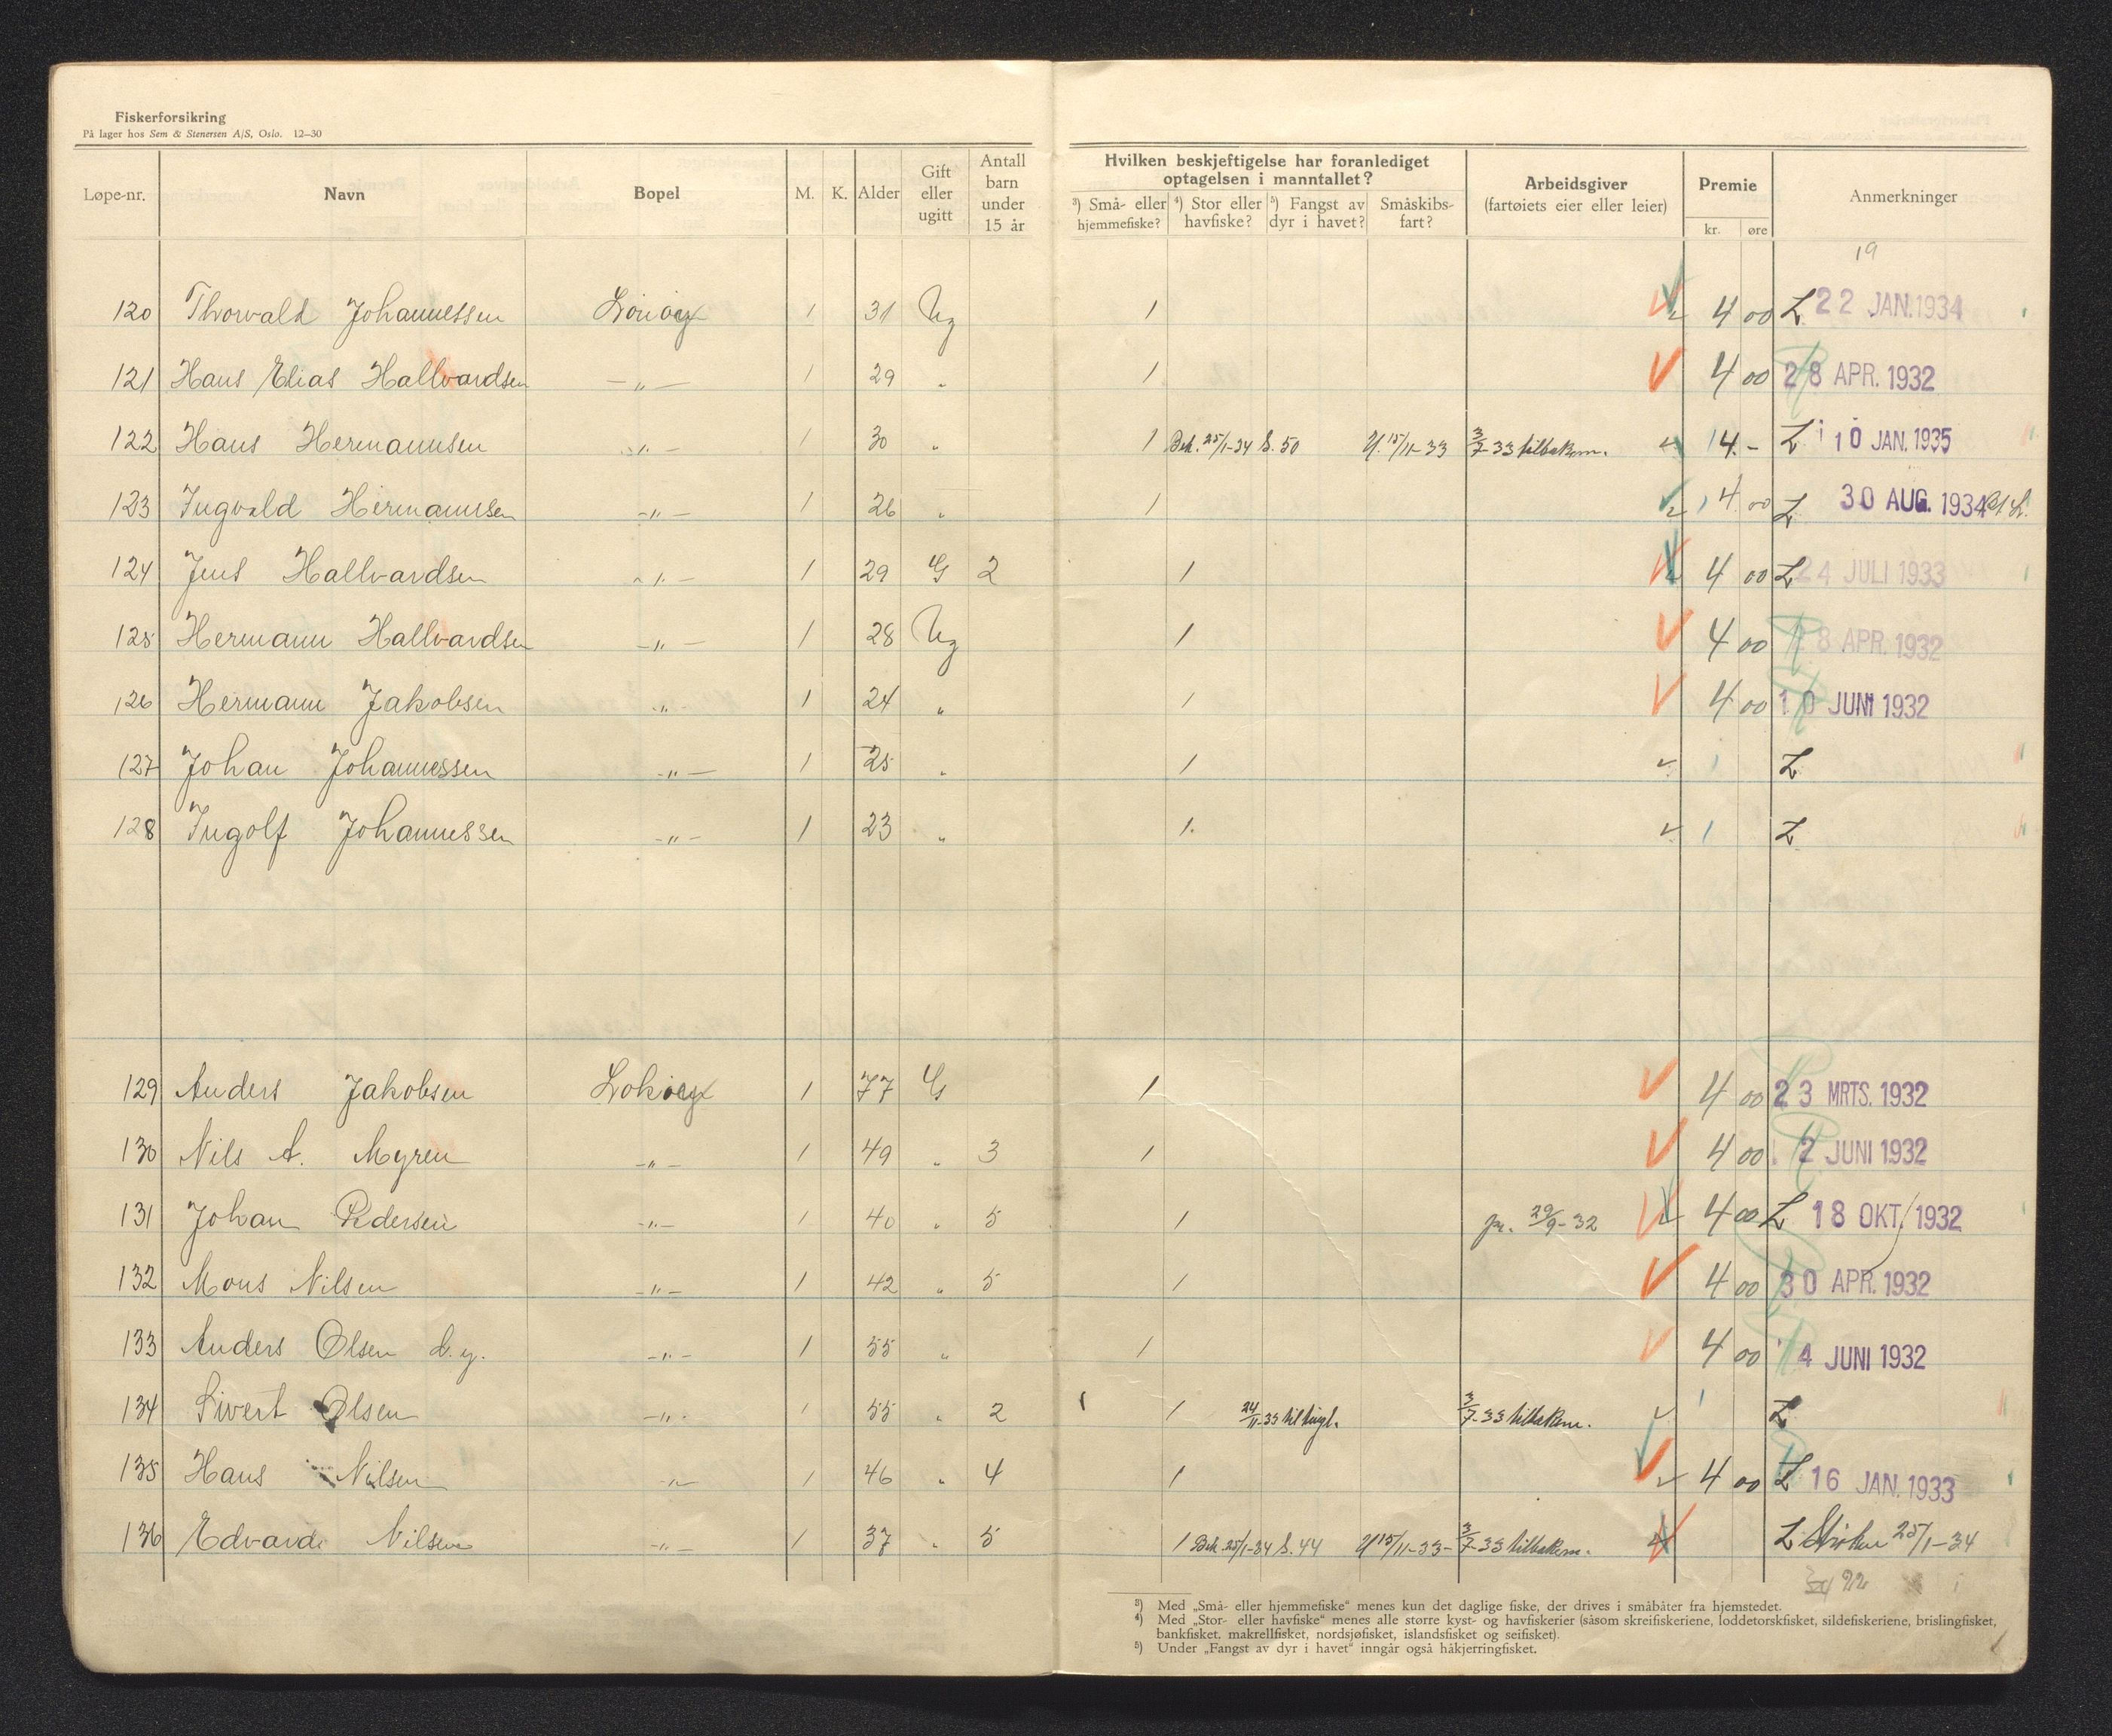 Fiskerforsikring
På lager hos Sem & Stenersen A/S, Oslo. 12—30
Løpe-nr. Navn Bopel M. K. Alder Gift eller ugitt Antall barn under 15 år
Hvilken beskjeftigelse har foranlediget optagelsen i manntallet?
³) Små- eller hjemmefiske? ⁴) Stor eller havfiske? ⁵) Fangst av dyr i havet? Småskibs-fart?
Arbeidsgiver (fartøiets eier eller leier) Premie kr. øre Anmerkninger
19
120 Thorvald Johannessen 1 31 Ug 1 4 00 L 22 JAN. 1934
121 Hans Elias Hallvardsen —"— 1 29 " 1 4 00 28 APR. 1932
122 Hans Hermannsen —"— 1 30 " 1 Bek. 25/1-34 S. 50 U. 15/11-33 3/7-33 tilbakem. 14.- L 10 JAN. 1935
123 Ingvald Hermannsen —"— 1 26 " 1 1 4 00 L 30 AUG. 1934
124 Jens Hallvardsen —"— 1 29 G 2 1 4 00 L 24 JULI 1933
125 Hermann Hallvardsen —"— 1 28 Ug 1 4 00 28 APR. 1932
126 Hermann Jakobsen —"— 1 24 " 1 4 00 10 JUNI 1932
127 Johan Johannessen —"— 1 25 " 1 1 L
128 Ingolf Johannessen —"— 1 23 " 1. 1 L
129 Anders Jakobsen Lokøy 1 77 G 1 4 00 23 MRTS. 1932
130 Nils A. Myren —"— 1 49 " 3 1 4 00 2 JUNI 1932
131 Johan Pedersen —"— 1 40 " 5 1 29/9-32 4 00 L 18 OKT. 1932
132 Mons Nilsen —"— 1 42 " 5 1 4 00 30 APR. 1932
133 Anders Olsen —"— 1 55 " 1 4 00 14 JUNI 1932
134 Sivert Olsen —"— 1 55 " 2 1 1 24/11-33 3/7-33 tilbakem. 1 L
135 Hans Nilsen —"— 1 46 " 4 1 4 00 L 16 JAN. 1933
136 Edvard Nilsen —"— 1 37 " 5 1 Bek. 25/1-34 S. 44 U 15/11-33 3/7-33 tilbakem. L 25/1-34
22
³) Med „Små- eller hjemmefiske“ menes kun det daglige fiske, der drives i småbåter fra hjemstedet.
⁴) Med „Stor- eller havfiske“ menes alle større kyst- og havfiskerier (såsom skreifiskeriene, loddetorskfisket, sildefiskeriene, brislingfisket,
bankfisket, makrellfisket, nordsjøfisket, islandsfisket og seifisket).
⁵) Under „Fangst av dyr i havet“ inngår også håkjerringfisket.